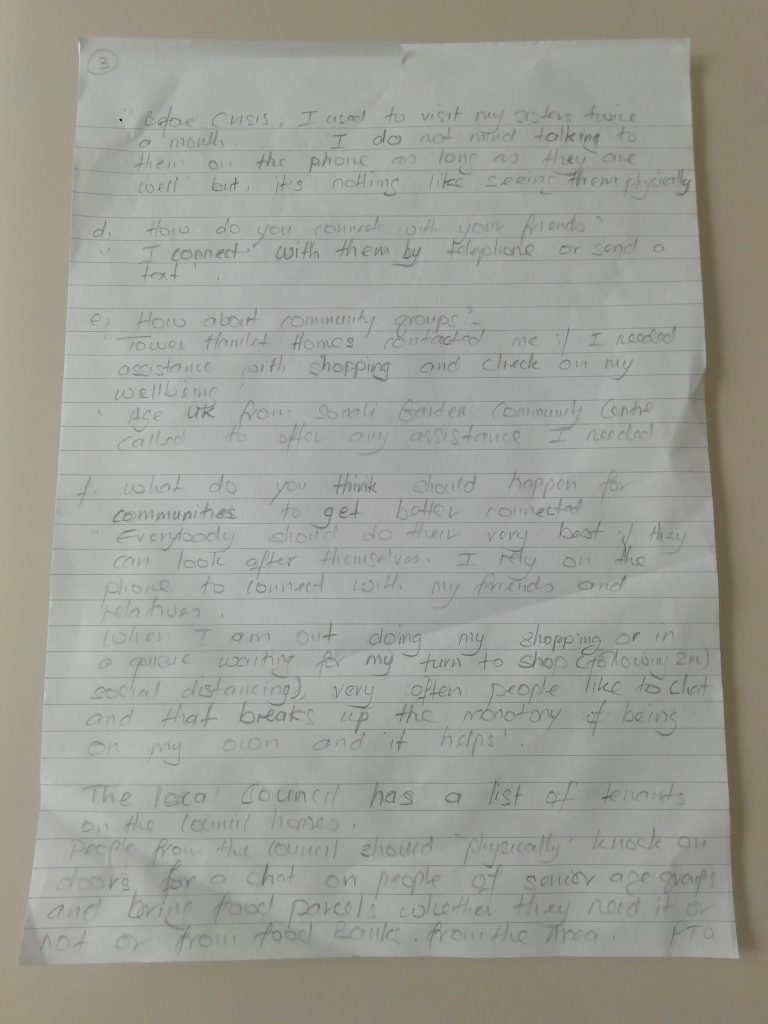 3
Before Crisis, I used to visit my sisters twice
a month. I do not mind talking to
them on the phone as long as they are
well but, it's nothing like seeing them physically
d, How do you connect with your friends?
" I connect with them by telephone or send a
text'.
e, How about community groups?-
Tower Hamlet Homes contacted me if I needed
assistance with shopping and check on my
wellbeing'
Age UK from Somali Garden Community Centre
called to offer any assistance I needed
f. What do you think should happen for
communities to get better connected
" Everybody should do their very best if they
can look after themselves. I rely on the
phone to connect with my friends and
relatives.
When I am out doing my shopping or in
a queue waiting for my turn to shop (following 2m)
social distancing), very often people like to chat
and that breaks up the monotony of being
on my own and it helps'.
The local Council has a list of tenants
on the Council homes.
People from the council should "physically' knock on
doors for a chat on people of senior age groups
and bring food parcels whether they need it or
not or from food Banks. from the Area. PTO